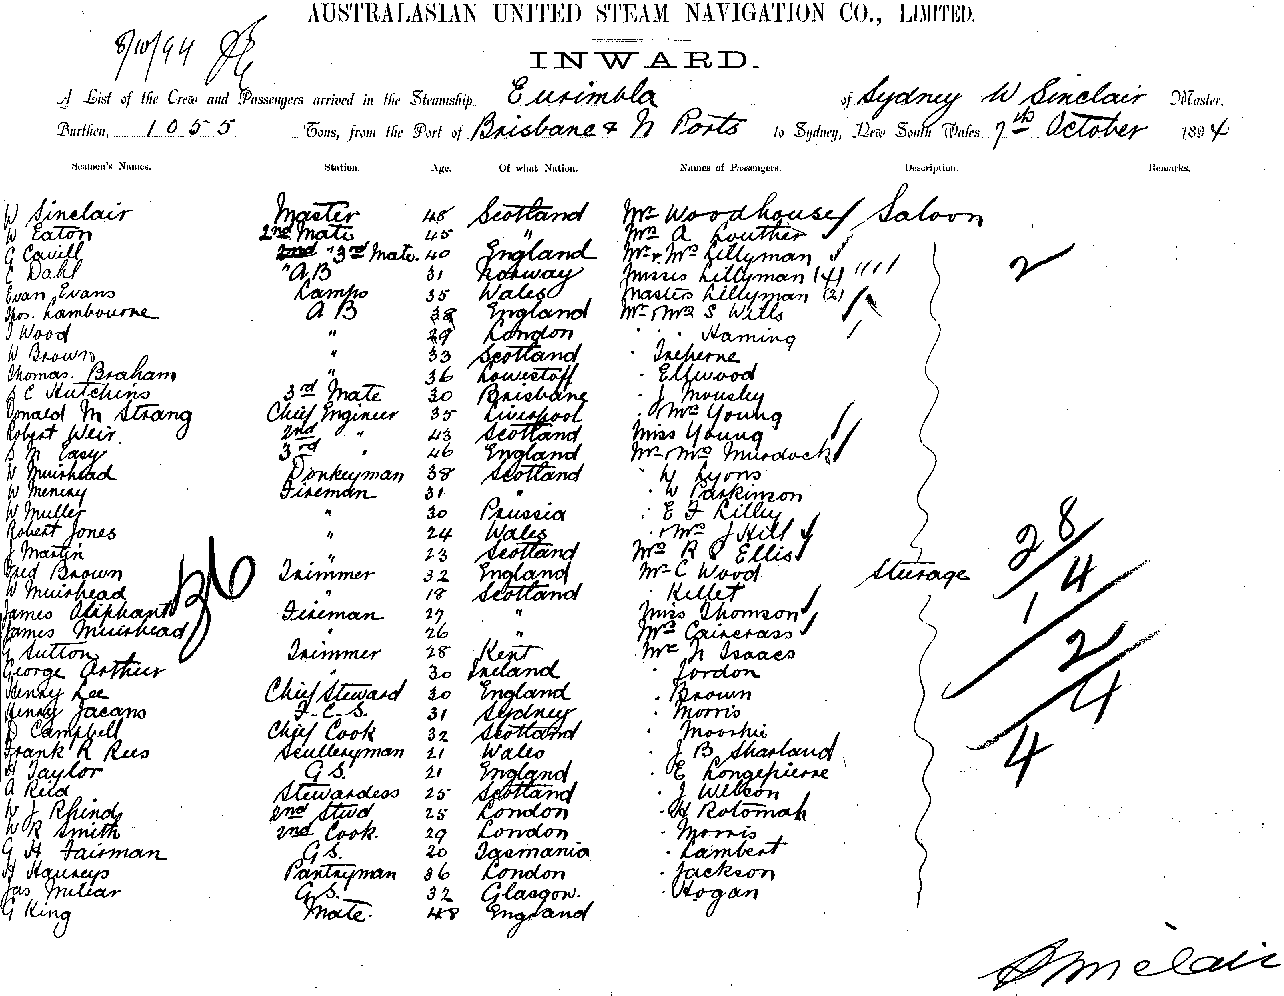 AUSTRALASIAN UNITED STEAM NAVIGATION CO., LIMITED.
8/10/94
INWARD.
A List of the Crew and Passengers arrived in the Steamship Eurimbla of Sydney W Sinclair Master.
Burthen, 1055 Tons, from the Port of Brisbane & N Ports to Sydney, New South Wales 7th October 1894
Seamen's Names. Station. Age. Of what Nation. Names of Passengers. Description. Remarks.
W Sinclair Master 48 Scotland Mr Woodhouse Saloon
W Eaton 2nd Mate 45 " Mrs A Louther
G Cavill 3rd Mate. 40 England Mr & Mrs Lillyman 2
C Dahl "AB 31 Norway Misses Lillyman (4) " " "
Evan Evans Lamps 35 Wales Masters Lillyman (2)
Thos. Lambourne A B 38 England Mr & Mrs S Wills
J Wood " 29 London " Haming
W Brown " 33 Scotland " Treherne
Thomas Braham " 36 Lowestoff " Ellwood
J C Hutchins 3rd Mate 30 Brisbane " J Mousley
Donald M Strang Chief Engineer 35 Liverpool " & Mrs Young
Robert Weir 2nd " 43 Scotland Miss Young
S M Easy 3rd " 46 England Mr & Mrs Murdock
W Muirhead Donkeyman 38 Scotland " W Lyons
W Menery Fireman 31 " " W Parkinson
W Muller " 30 Prussia " E F Lilley
Robert Jones " 24 Wales " & Mrs J Hill
J Martin " 23 Scotland Mrs R S Ellis
Fred Brown Trimmer 32 England Mr C Wood Steerage
W Muirhead " 18 Scotland " Killet
James Oliphant Fireman 27 " Miss Thomson
James Muirhead " 26 " Mrs Cairncrass
G Sutton Trimmer 28 Kent Mr N Isaacs
George Arthur " 30 Ireland " Jordon
Henry Lee Chief Steward 30 England " Brown
Henry Jacans F.C.S. 31 Sydney " Morris
D Campbell Chief Cook 32 Scotland
Frank R Rees Sculleryman 21 Wales " J B Sharland
H Taylor G S. 21 England " E Longepierre
A Reid Stewardess 25 Scotland " J Wilson
W J Rhind 2nd Stwd 25 London " H Rotomah
W R Smith 2nd Cook. 29 London " Morris
G H Fairman G S. 20 Tasmania " Lambert
Pantryman 36 London " Jackson
Jas Millar G S. 32 Glasgow. " Hogan
G King Mate. 48 England
36
28
4
1
2
4
4
Sinclair